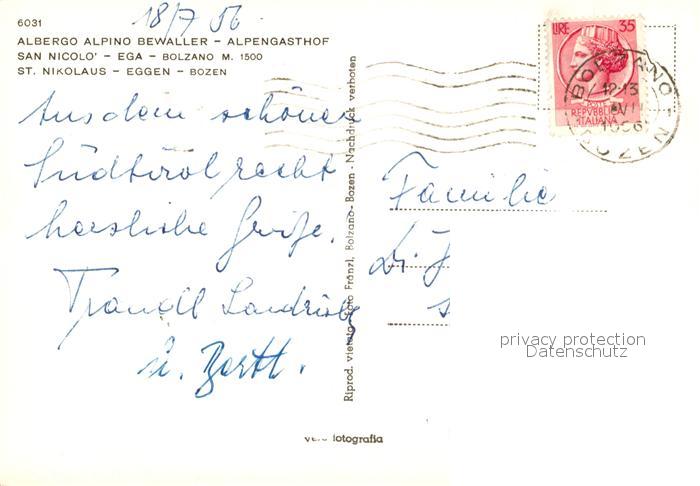 18/7 56
6031
ALBERGO ALPINO BEWALLER - ALPENGASTHOF
SAN NICOLO' - EGA - BOLZANO M. 1500
ST. NIKOLAUS - EGGEN - BOZEN
Aus dem schönen
Südtirol recht
herzliche Grüße.
u.
Riprod. vietata - Foto Fränzl, Bolzano-Bozen - Nachdruck verboten
vera fotografia
LIRE 35
POSTE
REPVBBLICA
ITALIANA
BOLZANO
12-13
1956
BOZEN
Familie
privacy protection
Datenschutz